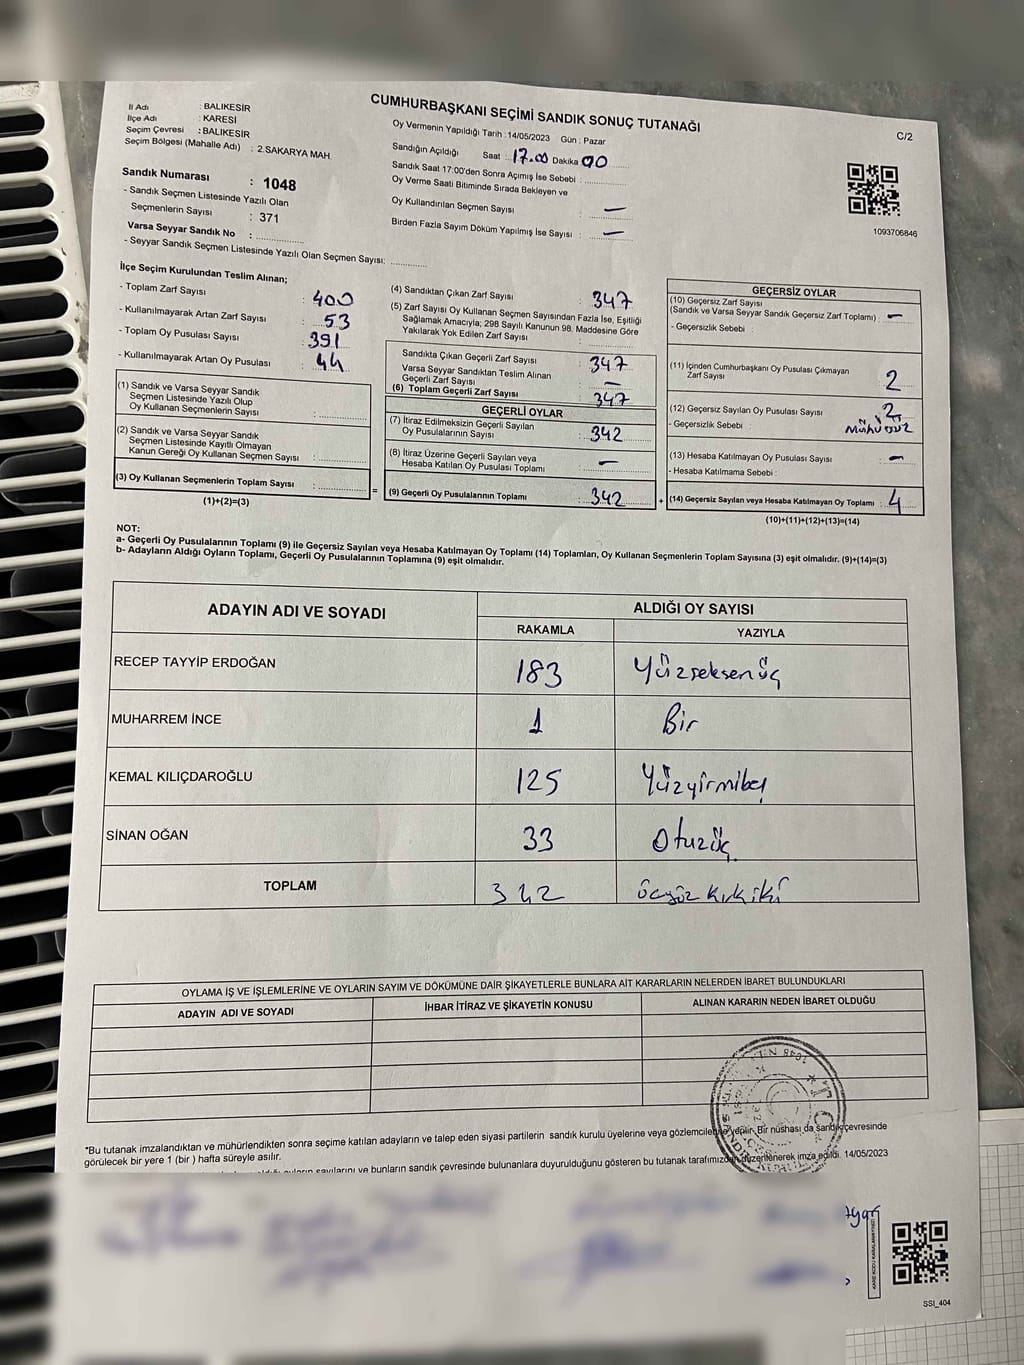 CUMHURBAŞKANI SEÇİMİ SANDIK SONUÇ TUTANAĞI
C/2
İl Adı : BALIKESİR
İlçe Adı : KARESİ
Seçim Çevresi : BALIKESİR
Seçim Bölgesi (Mahalle Adı) : 2.SAKARYA MAH.
Sandık Numarası : 1048
- Sandık Seçmen Listesinde Yazılı Olan
Seçmenlerin Sayısı : 371
Varsa Seyyar Sandık No :
- Seyyar Sandık Seçmen Listesinde Yazılı Olan Seçmen Sayısı:
Oy Vermenin Yapıldığı Tarih : 14/05/2023 Gün : Pazar
Sandığın Açıldığı Saat : 17.00 Dakika 00
Sandık Saat 17:00'den Sonra Açımış İse Sebebi :
Oy Verme Saati Bitiminde Sırada Bekleyen ve
Oy Kullandırılan Seçmen Sayısı : —
Birden Fazla Sayım Döküm Yapılmış İse Sayısı : —
1093706846
İlçe Seçim Kurulundan Teslim Alınan;
- Toplam Zarf Sayısı : 400
- Kullanılmayarak Artan Zarf Sayısı : 53
- Toplam Oy Pusulası Sayısı : 391
- Kullanılmayarak Artan Oy Pusulası : 44
(1) Sandık ve Varsa Seyyar Sandık
Seçmen Listesinde Yazılı Olup
Oy Kullanan Seçmenlerin Sayısı :
(2) Sandık ve Varsa Seyyar Sandık
Seçmen Listesinde Kayıtlı Olmayan
Kanun Gereği Oy Kullanan Seçmen Sayısı :
(3) Oy Kullanan Seçmenlerin Toplam Sayısı :
(1)+(2)=(3)
=
(4) Sandıktan Çıkan Zarf Sayısı : 347
(5) Zarf Sayısı Oy Kullanan Seçmen Sayısından Fazla İse, Eşitliği
Sağlamak Amacıyla; 298 Sayılı Kanunun 98. Maddesine Göre
Yakılarak Yok Edilen Zarf Sayısı :
Sandıkta Çıkan Geçerli Zarf Sayısı : 347
Varsa Seyyar Sandıktan Teslim Alınan
Geçerli Zarf Sayısı : —
(6) Toplam Geçerli Zarf Sayısı : 347
GEÇERLİ OYLAR
(7) İtiraz Edilmeksizin Geçerli Sayılan
Oy Pusulalarının Sayısı : 342
(8) İtiraz Üzerine Geçerli Sayılan veya
Hesaba Katılan Oy Pusulası Toplamı : —
(9) Geçerli Oy Pusulalarının Toplamı : 342
+
GEÇERSİZ OYLAR
(10) Geçersiz Zarf Sayısı
(Sandık ve Varsa Seyyar Sandık Geçersiz Zarf Toplamı) : —
- Geçersizlik Sebebi :
(11) İçinden Cumhurbaşkanı Oy Pusulası Çıkmayan
Zarf Sayısı : 2
(12) Geçersiz Sayılan Oy Pusulası Sayısı : 2
- Geçersizlik Sebebi :
(13) Hesaba Katılmayan Oy Pusulası Sayısı : —
- Hesaba Katılmama Sebebi :
(14) Geçersiz Sayılan veya Hesaba Katılmayan Oy Toplamı : 4
(10)+(11)+(12)+(13)=(14)
NOT:
a- Geçerli Oy Pusulalarının Toplamı (9) ile Geçersiz Sayılan veya Hesaba Katılmayan Oy Toplamı (14) Toplamları, Oy Kullanan Seçmenlerin Toplam Sayısına (3) eşit olmalıdır. (9)+(14)=(3)
b- Adayların Aldığı Oyların Toplamı, Geçerli Oy Pusulalarının Toplamına (9) eşit olmalıdır.
ADAYIN ADI VE SOYADI
ALDIĞI OY SAYISI
RAKAMLA YAZIYLA
RECEP TAYYİP ERDOĞAN 183 Yüzseksenüç
MUHARREM İNCE 1 Bir
KEMAL KILIÇDAROĞLU 125 Yüzyirmibeş
SİNAN OĞAN 33 Otuzüç
TOPLAM 342 üçyüz kırkiki
OYLAMA İŞ VE İŞLEMLERİNE VE OYLARIN SAYIM VE DÖKÜMÜNE DAİR ŞİKAYETLERLE BUNLARA AİT KARARLARIN NELERDEN İBARET BULUNDUKLARI
ADAYIN ADI VE SOYADI İHBAR İTİRAZ VE ŞİKAYETİN KONUSU ALINAN KARARIN NEDEN İBARET OLDUĞU
*Bu tutanak imzalandıktan ve mühürlendikten sonra seçime katılan adayların ve talep eden siyasi partilerin sandık kurulu üyelerine veya gözlemcilerine verilir. Bir nüshası da sandık çevresinde
görülecek bir yere 1 (bir ) hafta süreyle asılır.
oyların sayılarını ve bunların sandık çevresinde bulunanlara duyurulduğunu gösteren bu tutanak tarafımızdan düzenlenerek imza edildi. 14/05/2023
SSI_404